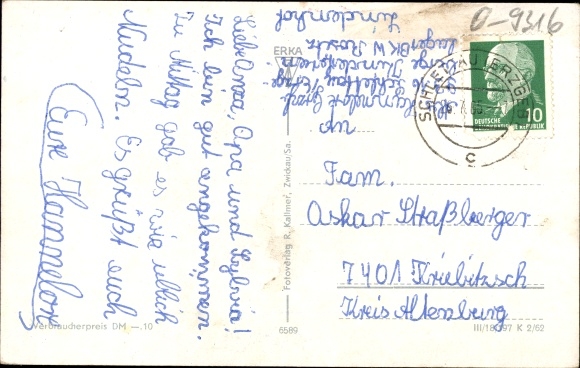 Liebe Oma, Opa und Sylvia!
Ich bin gut angekommen.
Zu Mittag gab es wie üblich
Nudeln. Es grüßt euch
Eure Hannelore
Hannelore
Lindenhof
ERKA
0-9316
SCHLETTAU (ERZGEB)
c
DEUTSCHE
DEMOKRATISCHE REPUBLIK
10
An
Fam.
Oskar Straßberger
7401 Kriebitzsch
Kreis Altenburg
Fotoverlag R. Kallmer, Zwickau/Sa.
Verbraucherpreis DM —.10
6589
III/18/197 K 2/62